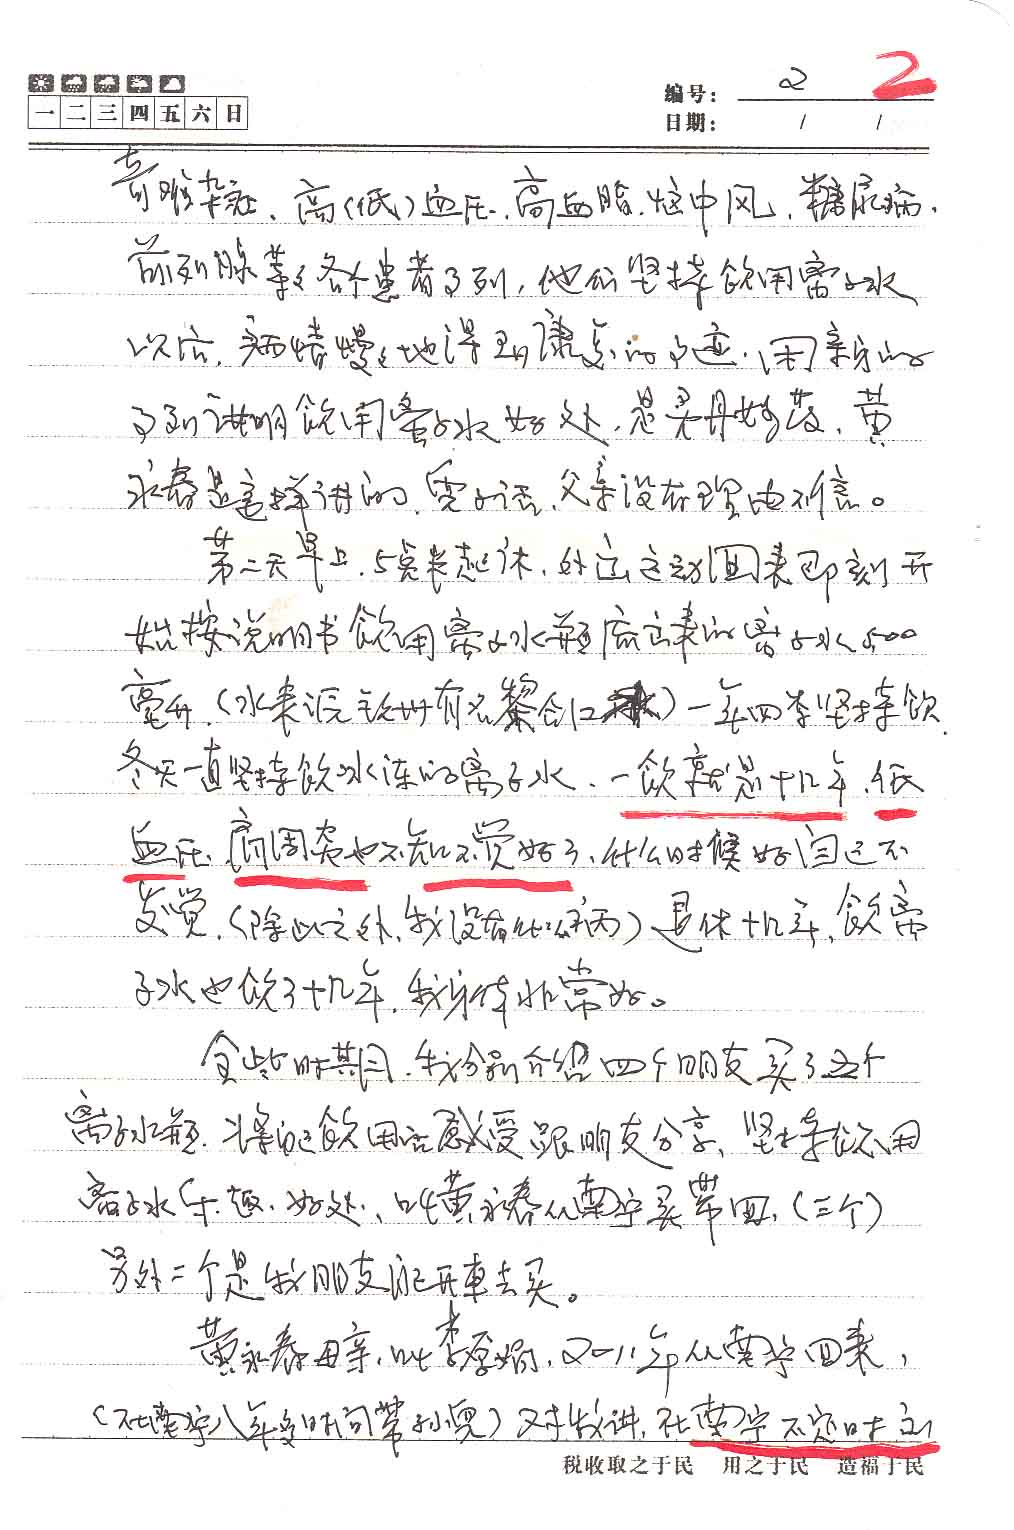 一 二 三 四 五 六 日
编号： 2 2
日期： / /
杂症、高(低)血压、高血脂、中风、糖尿病、
前列腺等各个患者，他们坚持饮用离子水
以后，病情慢慢地得到康复的，用亲身的
说明饮用离子水好处，是灵丹妙药，黄
永春是这样讲的，父亲没有理由不信。
第二天早上，5点半起床，外出运动回来即刻开
始按说明书饮用离子水瓶流出来的离子水500
毫升，(水来源钦州有名黎合江水)一年四季坚持饮，
冬天一直坚持饮冰冻的离子水，一饮就是十几年，低
血压，肩周炎也不知不觉好了，什么时候好自己不
发觉，(除此之外，我没有什么病)退休十几年，饮离
子水也饮了十几年，我身体非常好。
时期间，我分别介绍四个朋友买了五个
离子水瓶，将自己饮用后感受跟朋友分享，坚持饮用
离子水乐趣、好处、叫黄永春从南宁买带回，(三个)
另外二个是我朋友自己开車去买。
黄永春母亲，叫李，2011年从南宁回来，
(在南宁八年时间带孙儿)对我讲，在南宁不定时的
税收取之于民　用之于民　造福于民